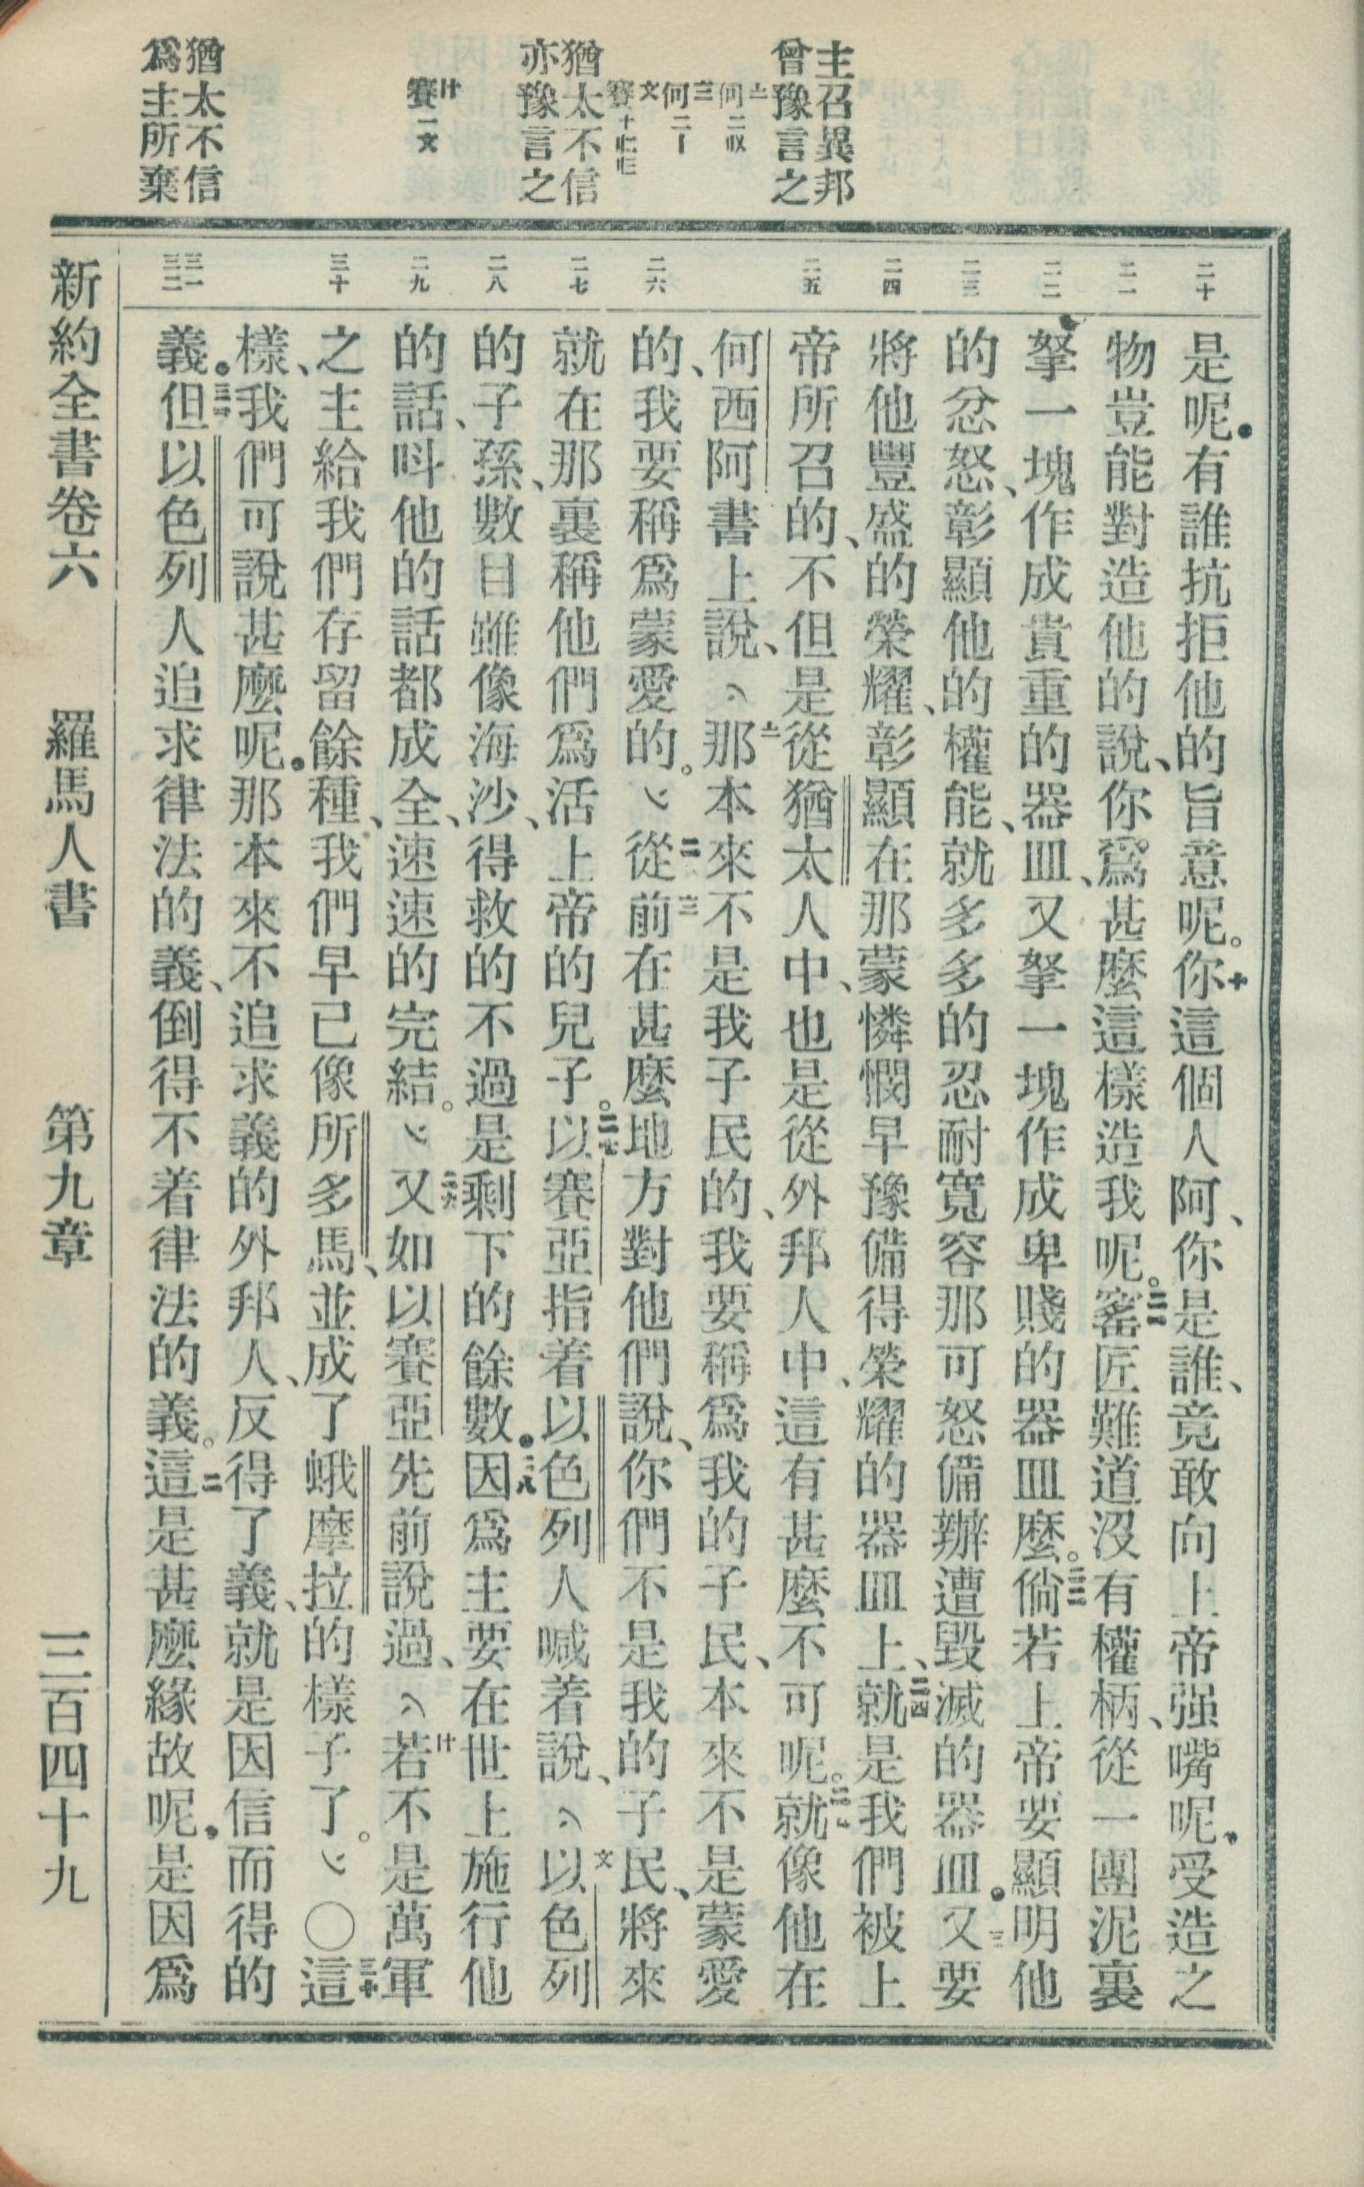 主召異邦
曾豫言之
猶太不信
亦豫言之
猶太不信
爲主所棄
二十
二一
二二
二三
二四
二五
二六
二七
二八
二九
三十
三一
三二
是呢．有誰抗拒他的旨意呢。你這個人阿、你是誰、竟敢向上帝强嘴呢．受造之
物豈能對造他的說、你爲甚麼這樣造我呢。窰匠難道沒有權柄、從一團泥裏
拏一塊作成貴重的器皿、又拏一塊作成卑賤的器皿麼。倘若上帝要顯明他
的忿怒、彰顯他的權能、就多多的忍耐寬容那可怒備辦遭毀滅的器皿．又要
將他豐盛的榮耀、彰顯在那蒙憐憫早豫備得榮耀的器皿上、就是我們被上
帝所召的、不但是從猶太人中、也是從外邦人中、這有甚麼不可呢。就像他在
何西阿書上說、那本來不是我子民的、我要稱爲我的子民、本來不是蒙愛
的、我要稱爲蒙愛的。從前在甚麼地方對他們說、你們不是我的子民、將來
就在那裏稱他們爲活上帝的兒子。以賽亞指着以色列人喊着說、以色列
的子孫、數目雖像海沙、得救的不過是剩下的餘數．因爲主要在世上施行他
的話、呌他的話都成全、速速的完結。又如以賽亞先前說過、若不是萬軍
之主給我們存留餘種、我們早已像所多馬、並成了蛾摩拉的樣子了。○這
樣、我們可說甚麼呢．那本來不追求義的外邦人、反得了義、就是因信而得的
義．但以色列人追求律法的義、倒得不着律法的義。這是甚麼緣故呢．是因爲
新約全書卷六　羅馬人書　第九章　三百四十九